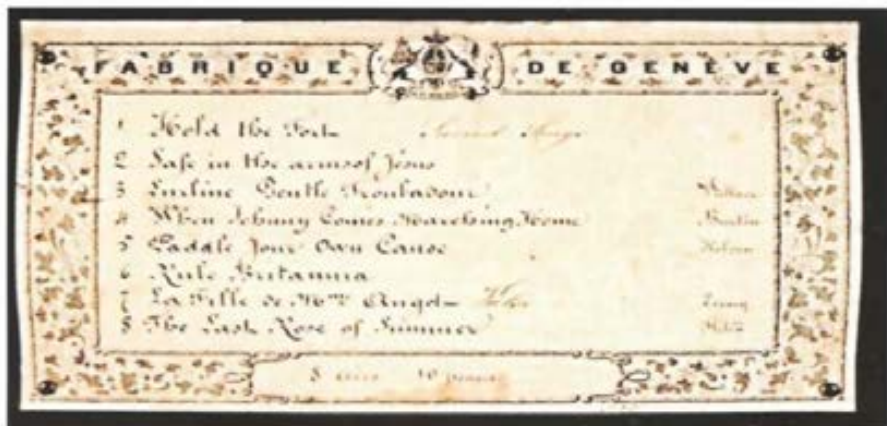 FABRIQUE DE GENÈVE
1 Hold the Fort Sacred Songs
2 Safe in the arms of Jesus
3 Lurline Gentle Troubadour Wallace
4 When Johnny Comes Marching Home
5 Paddle Your Own Canoe
6 Rule Britannia
7 La Fille de Mme Angot
8 The Last Rose of Summer
8 airs